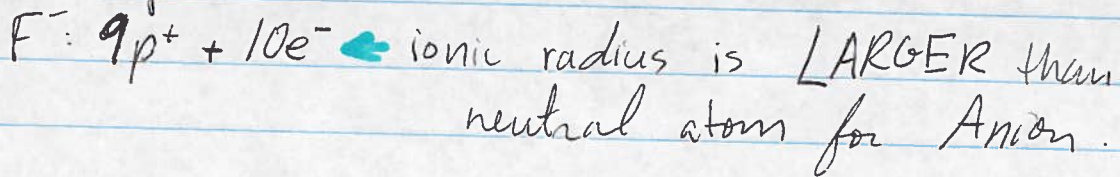 F⁻: 9p⁺ + 10e⁻ ← ionic radius is LARGER than
neutral atom for Anion.